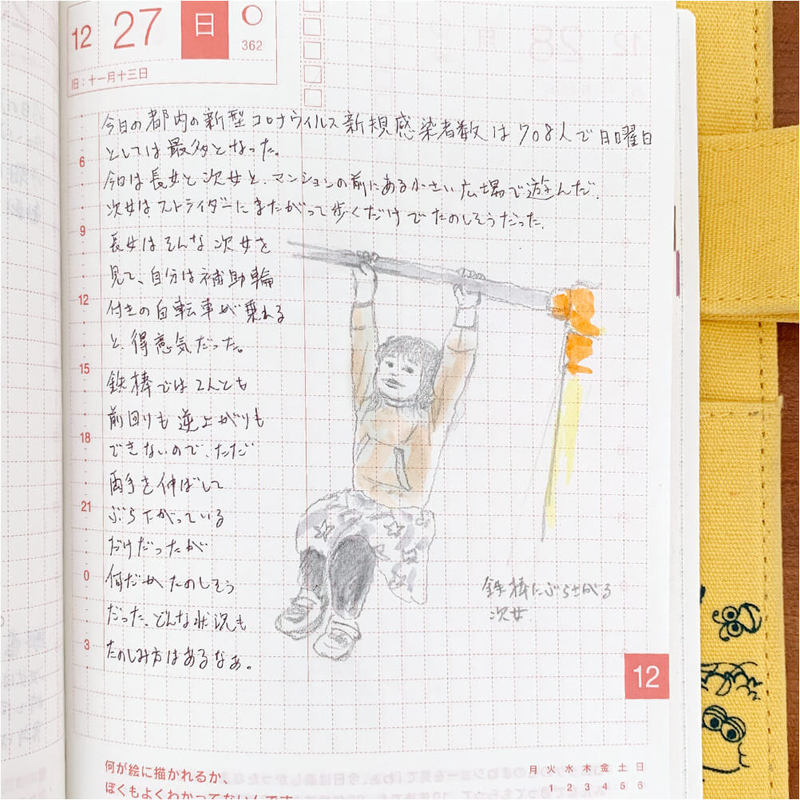 12 27 日
362
旧:十一月十三日
今日の都内の新型コロナウイルス新規感染者数は708人で日曜日
としては最多となった。
今日は長女と次女と、マンションの前にある小さい広場で遊んだ。
次女はストライダーにまたがって歩くだけでたのしそうだった。
長女はそんな次女を
見て、自分は補助輪
付きの自転車が乗れる
と、得意気だった。
鉄棒では2人とも
前回りも逆上がりも
できないので、ただ
両手を伸ばして
ぶらさがっている
だけだったが
何だかたのしそう
だった、どんな状況も
たのしみ方はあるなぁ。
6
9
12
15
18
21
0
3
鉄棒にぶらさがる
次女
12
何が絵に描かれるか、
ぼくもよくわかってないんです
月 火 水 木 金 土 日
1 2 3 4 5 6